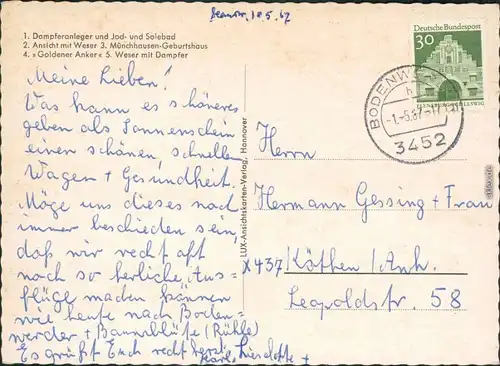 1. Dampferanleger und Jod- und Solebad
2. Ansicht mit Weser 3. Münchhausen-Geburtshaus
4. »Goldener Anker« 5. Weser mit Dampfer
1.5.67
Meine Lieben!
Was kann es schöneres
geben als Sonnenschein
einen schönen, schnellen
Wagen + Gesundheit.
Möge uns dieses noch
immer beschieden sein,
daß wir recht oft
noch so herliche Aus-
flüge machen können
wie heute nach Boden-
werder + Baumblüte (Rühle)
Es grüßt Euch recht herzl.
Karl, Lieselotte +
LUX-Ansichtskarten-Verlag, Hannover
Deutsche Bundespost
30
FLENSBURG/SCHLESWIG
BODENW
h
-1.-5.67-17
3452
Herrn
Hermann Gessing + Frau
X437 Köthen / Anh.
Leopoldstr. 58